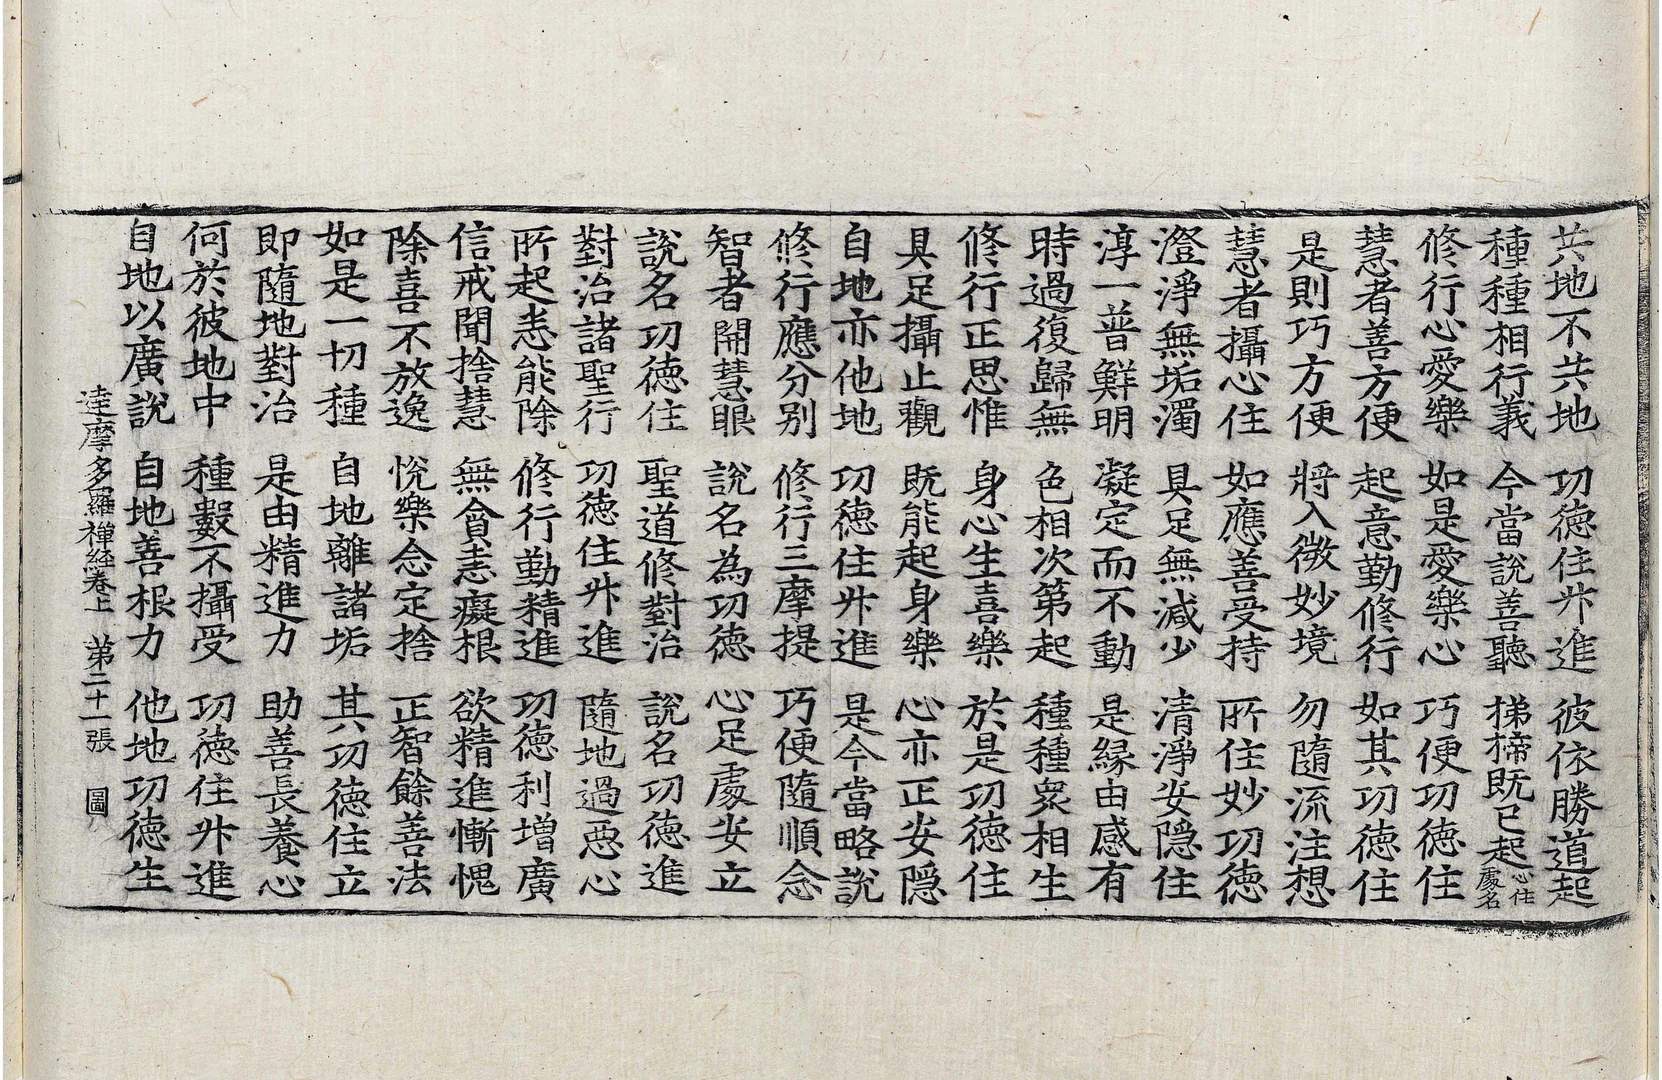 共地不共地 功德住升進 彼依勝道起
種種相行義 今當說善聽 㨑㨑既已起心住處名
修行心愛樂 如是愛樂心 巧便功德住
慧者善方便 起意勤修行 如其功德住
是則巧方便 將入微妙境 勿隨流注想
慧者攝心住 如應善受持 所住妙功德
澄淨無垢濁 具足無減少 清淨安隱住
淳一普鮮明 凝定而不動 是緣由感有
時過復歸無 色相次第起 種種衆相生
修行正思惟 身心生喜樂 於是功德住
具足攝止觀 既能起身樂 心亦正安隱
自地亦他地 功德住升進 是今當略說
修行應分别 修行三摩提 巧便隨順念
智者開慧眼 說名為功德 心足處安立
說名功德住 聖道修對治 說名功德進
對治諸聖行 功德住升進 隨地過惡心
所起恚能除 修行勤精進 功德利增廣
信戒聞捨慧 無貪恚癡根 欲精進慚愧
除喜不放逸 悅樂念定捨 正智餘善法
如是一切種 自地離諸垢 其功德住立
即隨地對治 是由精進力 助善長養心
何於彼地中 種數不攝受 功德住升進
自地以廣說 自地善根力 他地功德生
達摩多羅禪經卷上 第二十一張 圖